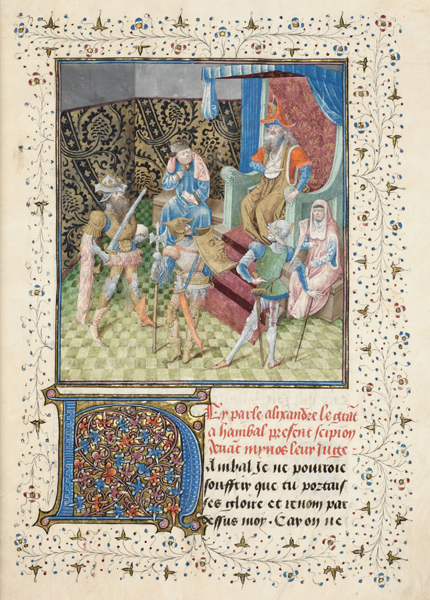 Cy parle alixandre le grãt
a hambal present scipion
deuãt mynos leur Juge
HAmbal Je ne pourroie
souffrir que tu portais
ses gloire et renom par
dessus moy. Car on ne